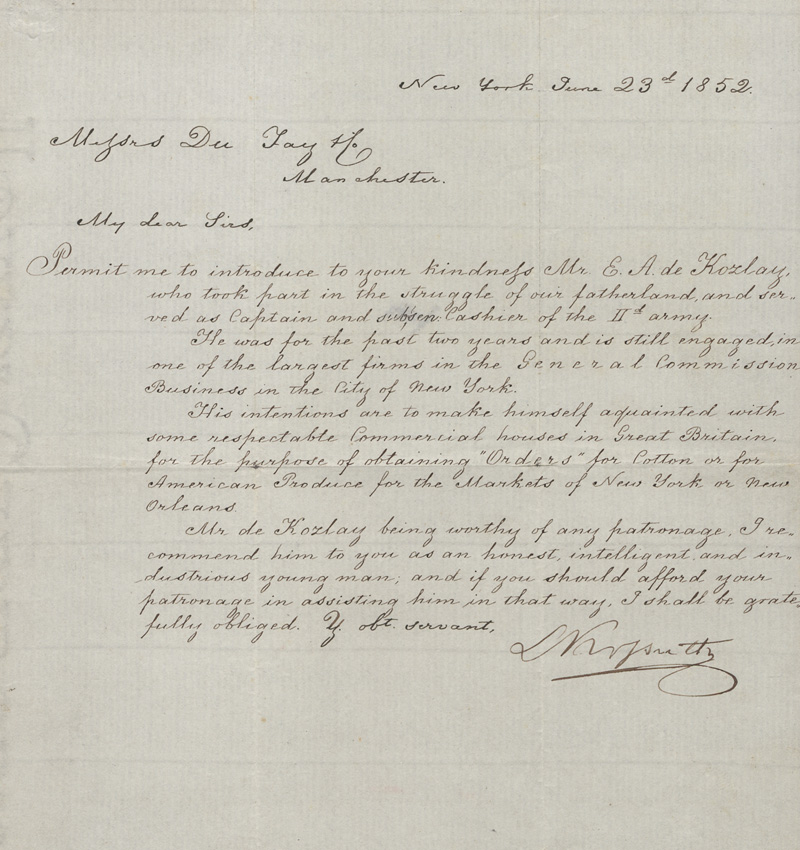 New York June 23d 1852.
Messrs Du Fay & Co
Manchester.
My dear Sirs,
Permit me to introduce to your kindness Mr E. A. de Kozlay,
who took part in the struggle of our fatherland, and ser-
ved as Captain and subsen. Cashier of the IId army.
He was for the past two years and is still engaged, in
one of the largest firms in the General Commission
Business in the City of New York.
His intentions are to make himself aquainted with
some respectable Commercial houses in Great Britain,
for the purpose of obtaining "Orders" for Cotton or for
American Produce for the Markets of New York or New
Orleans.
Mr de Kozlay being worthy of any patronage, I re-
commend him to you as an honest, intelligent and in-
dustrious young man; and if you should afford your
patronage in assisting him in that way, I shall be grate-
fully obliged. Y. obt. servant,
L Kossuth